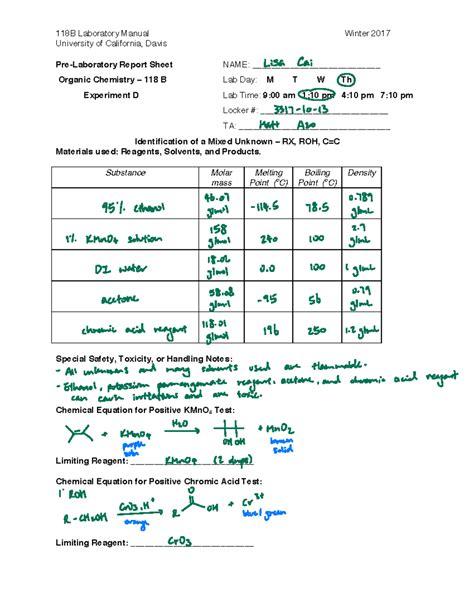 118B Laboratory Manual Winter 2017
University of California, Davis
Pre-Laboratory Report Sheet NAME: Lisa Cai
Organic Chemistry – 118 B Lab Day: M T W Th
Experiment D Lab Time: 9:00 am 1:10 pm 4:10 pm 7:10 pm
Locker #: 3317-10-13
TA: Matt Aso
Identification of a Mixed Unknown – RX, ROH, C=C
Materials used: Reagents, Solvents, and Products.
Substance Molar mass Melting Point (°C) Boiling Point (°C) Density
95% ethanol 46.07 g/mol -114.5 78.5 0.789 g/mL
1% KMnO4 solution 158 g/mol 240 100 2.7 g/mL
DI water 18.02 g/mol 0.0 100 1 g/mL
acetone 58.08 g/mol -95 56 0.79 g/mL
chromic acid reagent 118.01 g/mol 196 250 1.2 g/mL
Special Safety, Toxicity, or Handling Notes:
- All unknowns and many solvents used are flammable.
- Ethanol, potassium permanganate reagent, acetone, and chromic acid reagent
can cause irritations and are toxic.
Chemical Equation for Positive KMnO4 Test:
+ KMnO4 H2O OH OH + MnO2
purple soln brown solid
Limiting Reagent: KMnO4 (2 drops)
Chemical Equation for Positive Chromic Acid Test:
1° ROH
R-CH2OH CrO3, H+ orange R O OH + Cr3+ blue/green
Limiting Reagent: CrO3